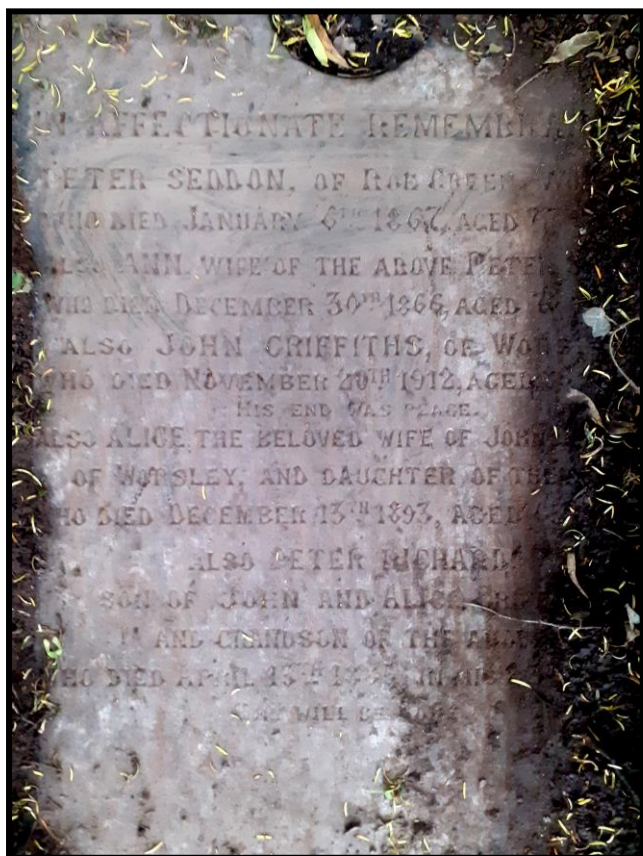 IN AFFECTIONATE
PETER SEDDON, OF ROE GREEN,
WHO DIED JANUARY 6TH 1867, AGED
ALSO ANN, WIFE OF THE ABOVE PETER
WHO DIED DECEMBER 30TH 1866, AGED
ALSO JOHN GRIFFITHS, OF
WHO DIED NOVEMBER 20TH 1912, AGED
HIS END WAS PEACE.
ALSO ALICE THE BELOVED WIFE OF JOHN
OF WORSLEY, AND DAUGHTER OF THE
WHO DIED DECEMBER 13TH 1893, AGED
ALSO PETER RICHARD,
SON OF JOHN AND ALICE
AND GRANDSON OF THE
WHO DIED APRIL
WILL BE